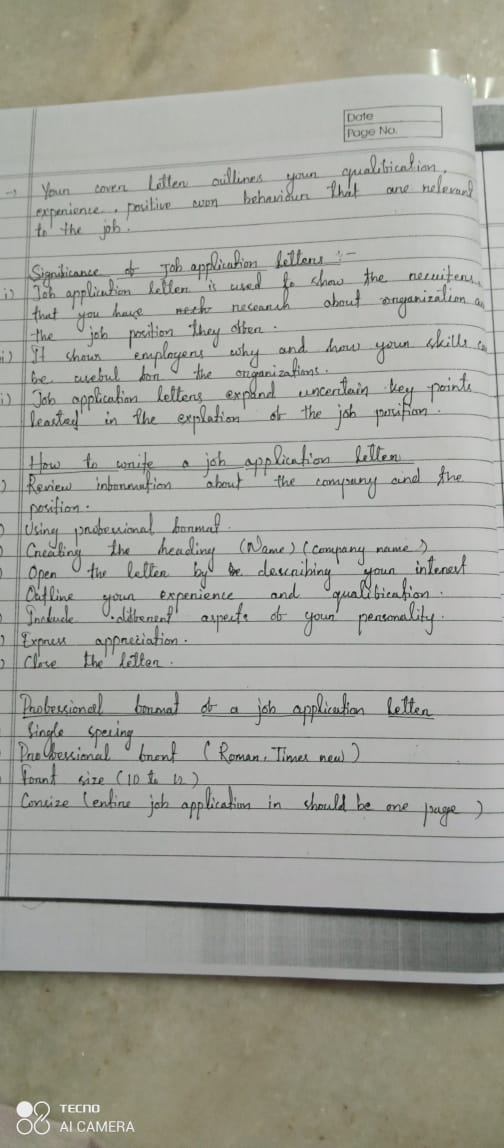 Date
Page No.
→ Your cover letter outlines your qualification,
experience, positive work behaviour that are relevant
to the job.
Significance of Job application letters :-
i) Job application letter is used to show the recruiters
that you have research about organization
the job position they offer.
i) It shows employers why and how your skills
be useful for the organizations.
i) Job application letters expand uncertain key points
in the of the job position.
How to write a job application letter
Review information about the company and the
position.
Using professional format.
Creating the heading (Name) (company name)
Open the letter by describing your interest
Outline your experience and qualification.
Include different aspects of your personality.
Express appreciation.
Close the letter.
Professional format of a job application letter
Single specing
Professional (Roman, Times new)
Font size (10 to 12)
Concize (entire job application in should be one page)
TECNO
AI CAMERA